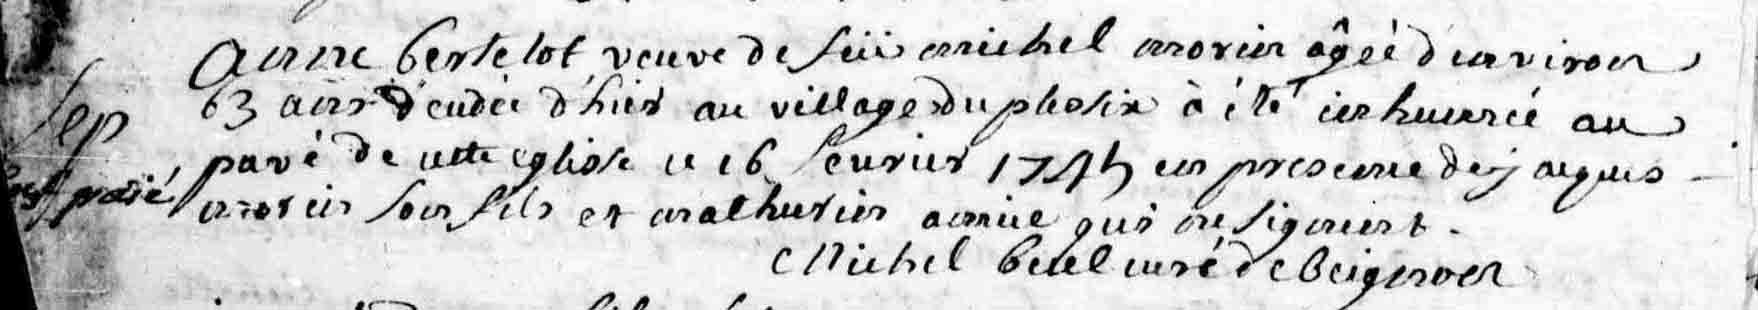 anne bertelot veuve de feü michel morin âgéé d'environ
63 ans d'cudée d'hier au village du plosix à été inhumée au
Sep
pavé de cette eglise le 16 fevrier 1745 en presence de jaques
est païé
morin son fils et mathurin amice qui ne signent.
Michel beuel curé de Beignon